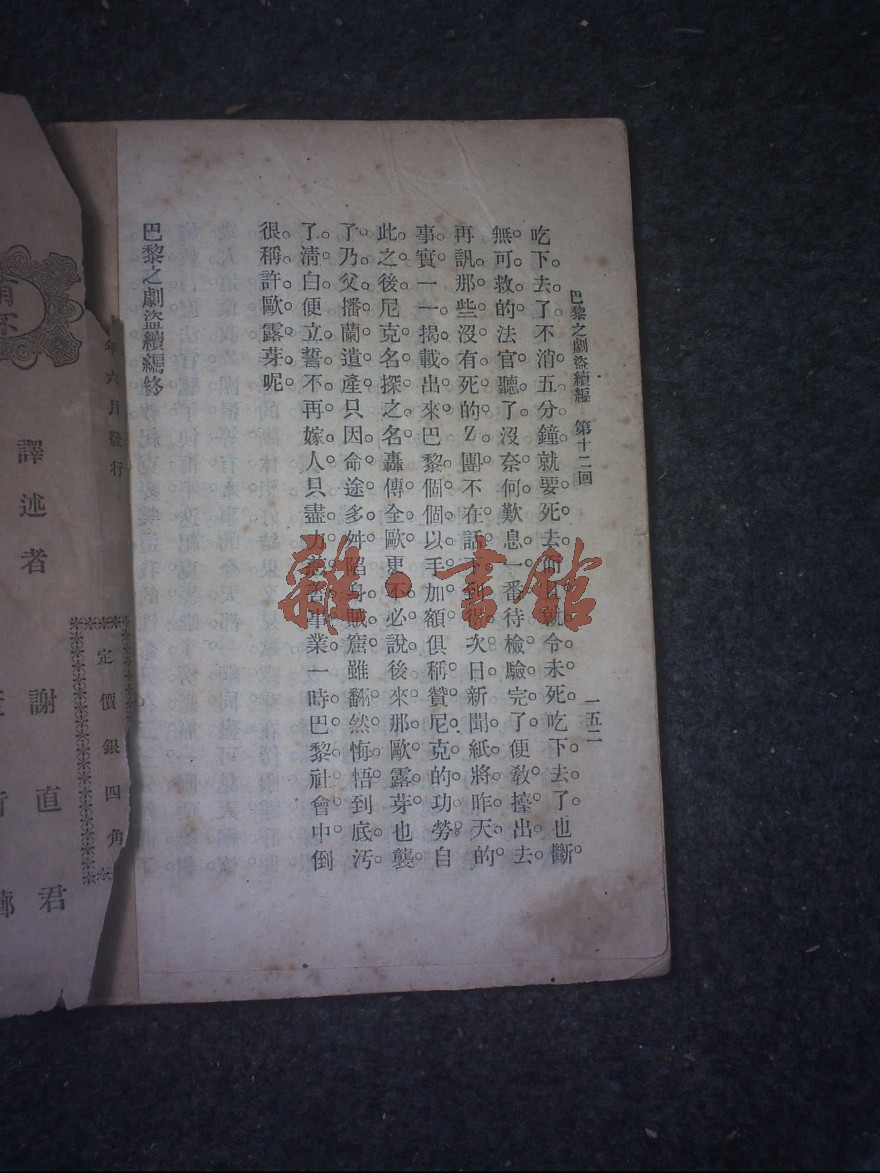 巴黎之劇盜續編 第十二回 一五二
吃下去了。不消五分鐘。就要死去。就令未死。吃下去了。也斷
無可救的。法官聽了。沒奈何歎息一番。待檢驗完了。便教擡出去。
再訊。那些沒有死的Z團。不在話下。到次日新聞紙將昨天的
事實一一揭載出來。巴黎個個以手加額。俱稱贊尼克的功勞。自
此之後。尼克名探之名。轟傳全歐。更不必說。後來那歐露芽也襲
了乃父播蘭遺產。只因命途多舛。陷身賊窟。雖翻然悔悟。到底汚
了清白。便立誓不再嫁人。只盡力慈善事業。一時巴黎社會中。倒
很稱許歐露芽呢。
巴黎之劇盜續編終
年六月發行
定價銀四角
譯述者 謝直君
雜·書館